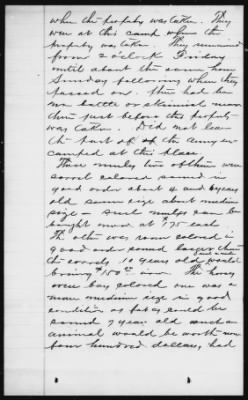 when the property was taken. They
were at this camp where the
property was taken. They remained
from 2 o'clock Friday
until about the same hour
Sunday following when they
passed on. There had been
no battle or skirmish near
there just before this property
was taken. Did not learn
the part of the army en-
camped at this place.
Three mules two of them were
sorrel colored sound in
good order about 4 and 6 years
old same size about medium
size - such mules can be
bought now at 175 each.
The other was roan colored in
good order sound larger than
the sorrels, 10 years old would
such a mule
bring $150 00 now. The horses
were bay colored one was a
mare medium size in good
condition as fat as could be
sound 7 years old such an
animal would be worth now
four hundred dollars, had